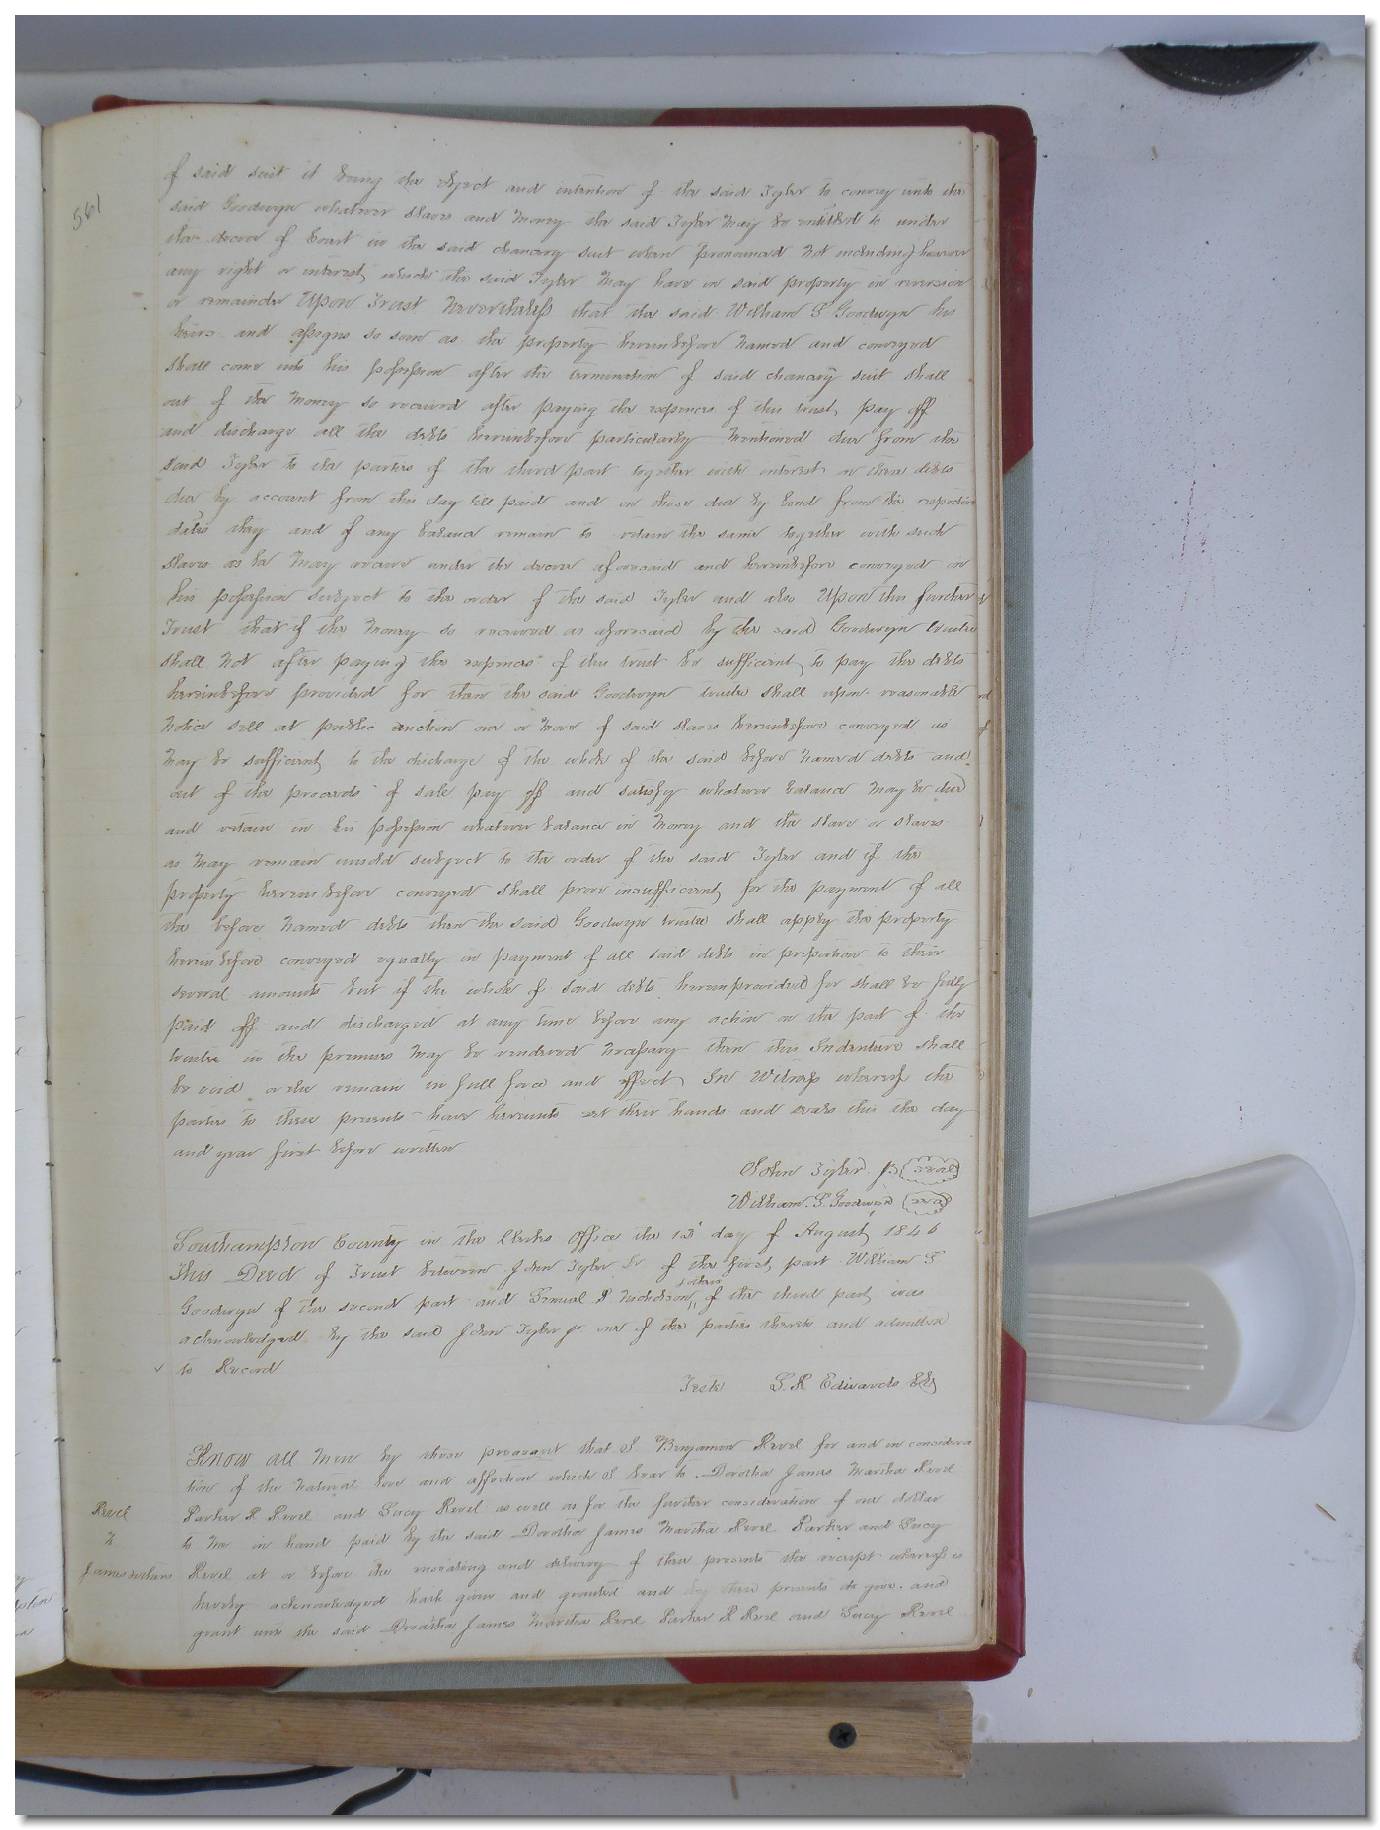 561
of said suit it being the object and intention of the said Tyler to convey unto the
said Goodwyn whatever slaves and money the said Tyler may be entitled to under
the decree of Court in the said chancery suit when pronounced not including however
any right or interest which the said Tyler may have in said property in reversion
or remainder Upon Trust Nevertheless that the said William S Goodwyn his
heirs and assigns so soon as the property hereinbefore named and conveyed
shall come into his possession after the termination of said chancery suit shall
out of the money so received after paying the expences of this trust, pay off
and discharge all the debts hereinbefore particularly mentioned due from the
said Tyler to the parties of the third part together with interest on those debts
due by account from this day till paid and on those due by bond from the respective
dates they and if any balance remain to retain the same together with such
slaves as he may receive under the decree aforesaid and hereinbefore conveyed in
his possession subject to the order of the said Tyler and also Upon this further
Trust that if the money so received as aforesaid by the said Goodwyn trustee
shall not after paying the expences of this trust be sufficient to pay the debts
hereinbefore provided for then the said Goodwyn trustee shall upon reasonable
notice sell at public auction one or more of said slaves hereinbefore conveyed as
may be sufficient to the discharge of the whole of the said before named debts and
out of the proceeds of sale pay off and satisfy whatever balance may be due
and retain in his possession whatever balance in money and the slave or slaves
as may remain unsold subject to the order of the said Tyler and if the
property hereinbefore conveyed shall prove insufficient for the payment of all
the before named debts then the said Goodwyn trustee shall apply the property
hereinbefore conveyed equally in payment of all said debts in proportion to their
several amounts but if the whole of said debts herein provided for shall be fully
paid off and discharged at any time before any action on the part of the
trustee in the premises may be rendered necessary then this Indenture shall
be void or else remain in full force and effect In Witness whereof the
parties to these presents have hereunto set their hands and seals this the day
and year first before written
John Tyler Jr seal
William S. Goodwyn seal
Southampton County in the Clerks Office the 13 day of August 1846
This Deed of Trust between John Tyler Jr of the first part William S
Goodwyn of the second part and Lemuel P Nicholson & others of the third part was
acknowledged by the said John Tyler Jr one of the parties thereto and admitted
to Record
Teste L. R. Edwards Clk
Know all men by these preasant that I Benjamin Revel for and in considera
tion of the natural love and affection which I bear to Dorotha James Martha Revel
Parker R Revel and Lucy Revel as well as for the further consideration of one dollar
Revel
to me in hand paid by the said Dorotha James Martha Revel Parker and Lucy
Revel at or before the ensealing and delivery of these presents the receipt whereof is
hereby acknowledged hath given and granted and by these presents do give and
grant unto the said Dorotha James Martha Revel Parker R Revel and Lucy Revel